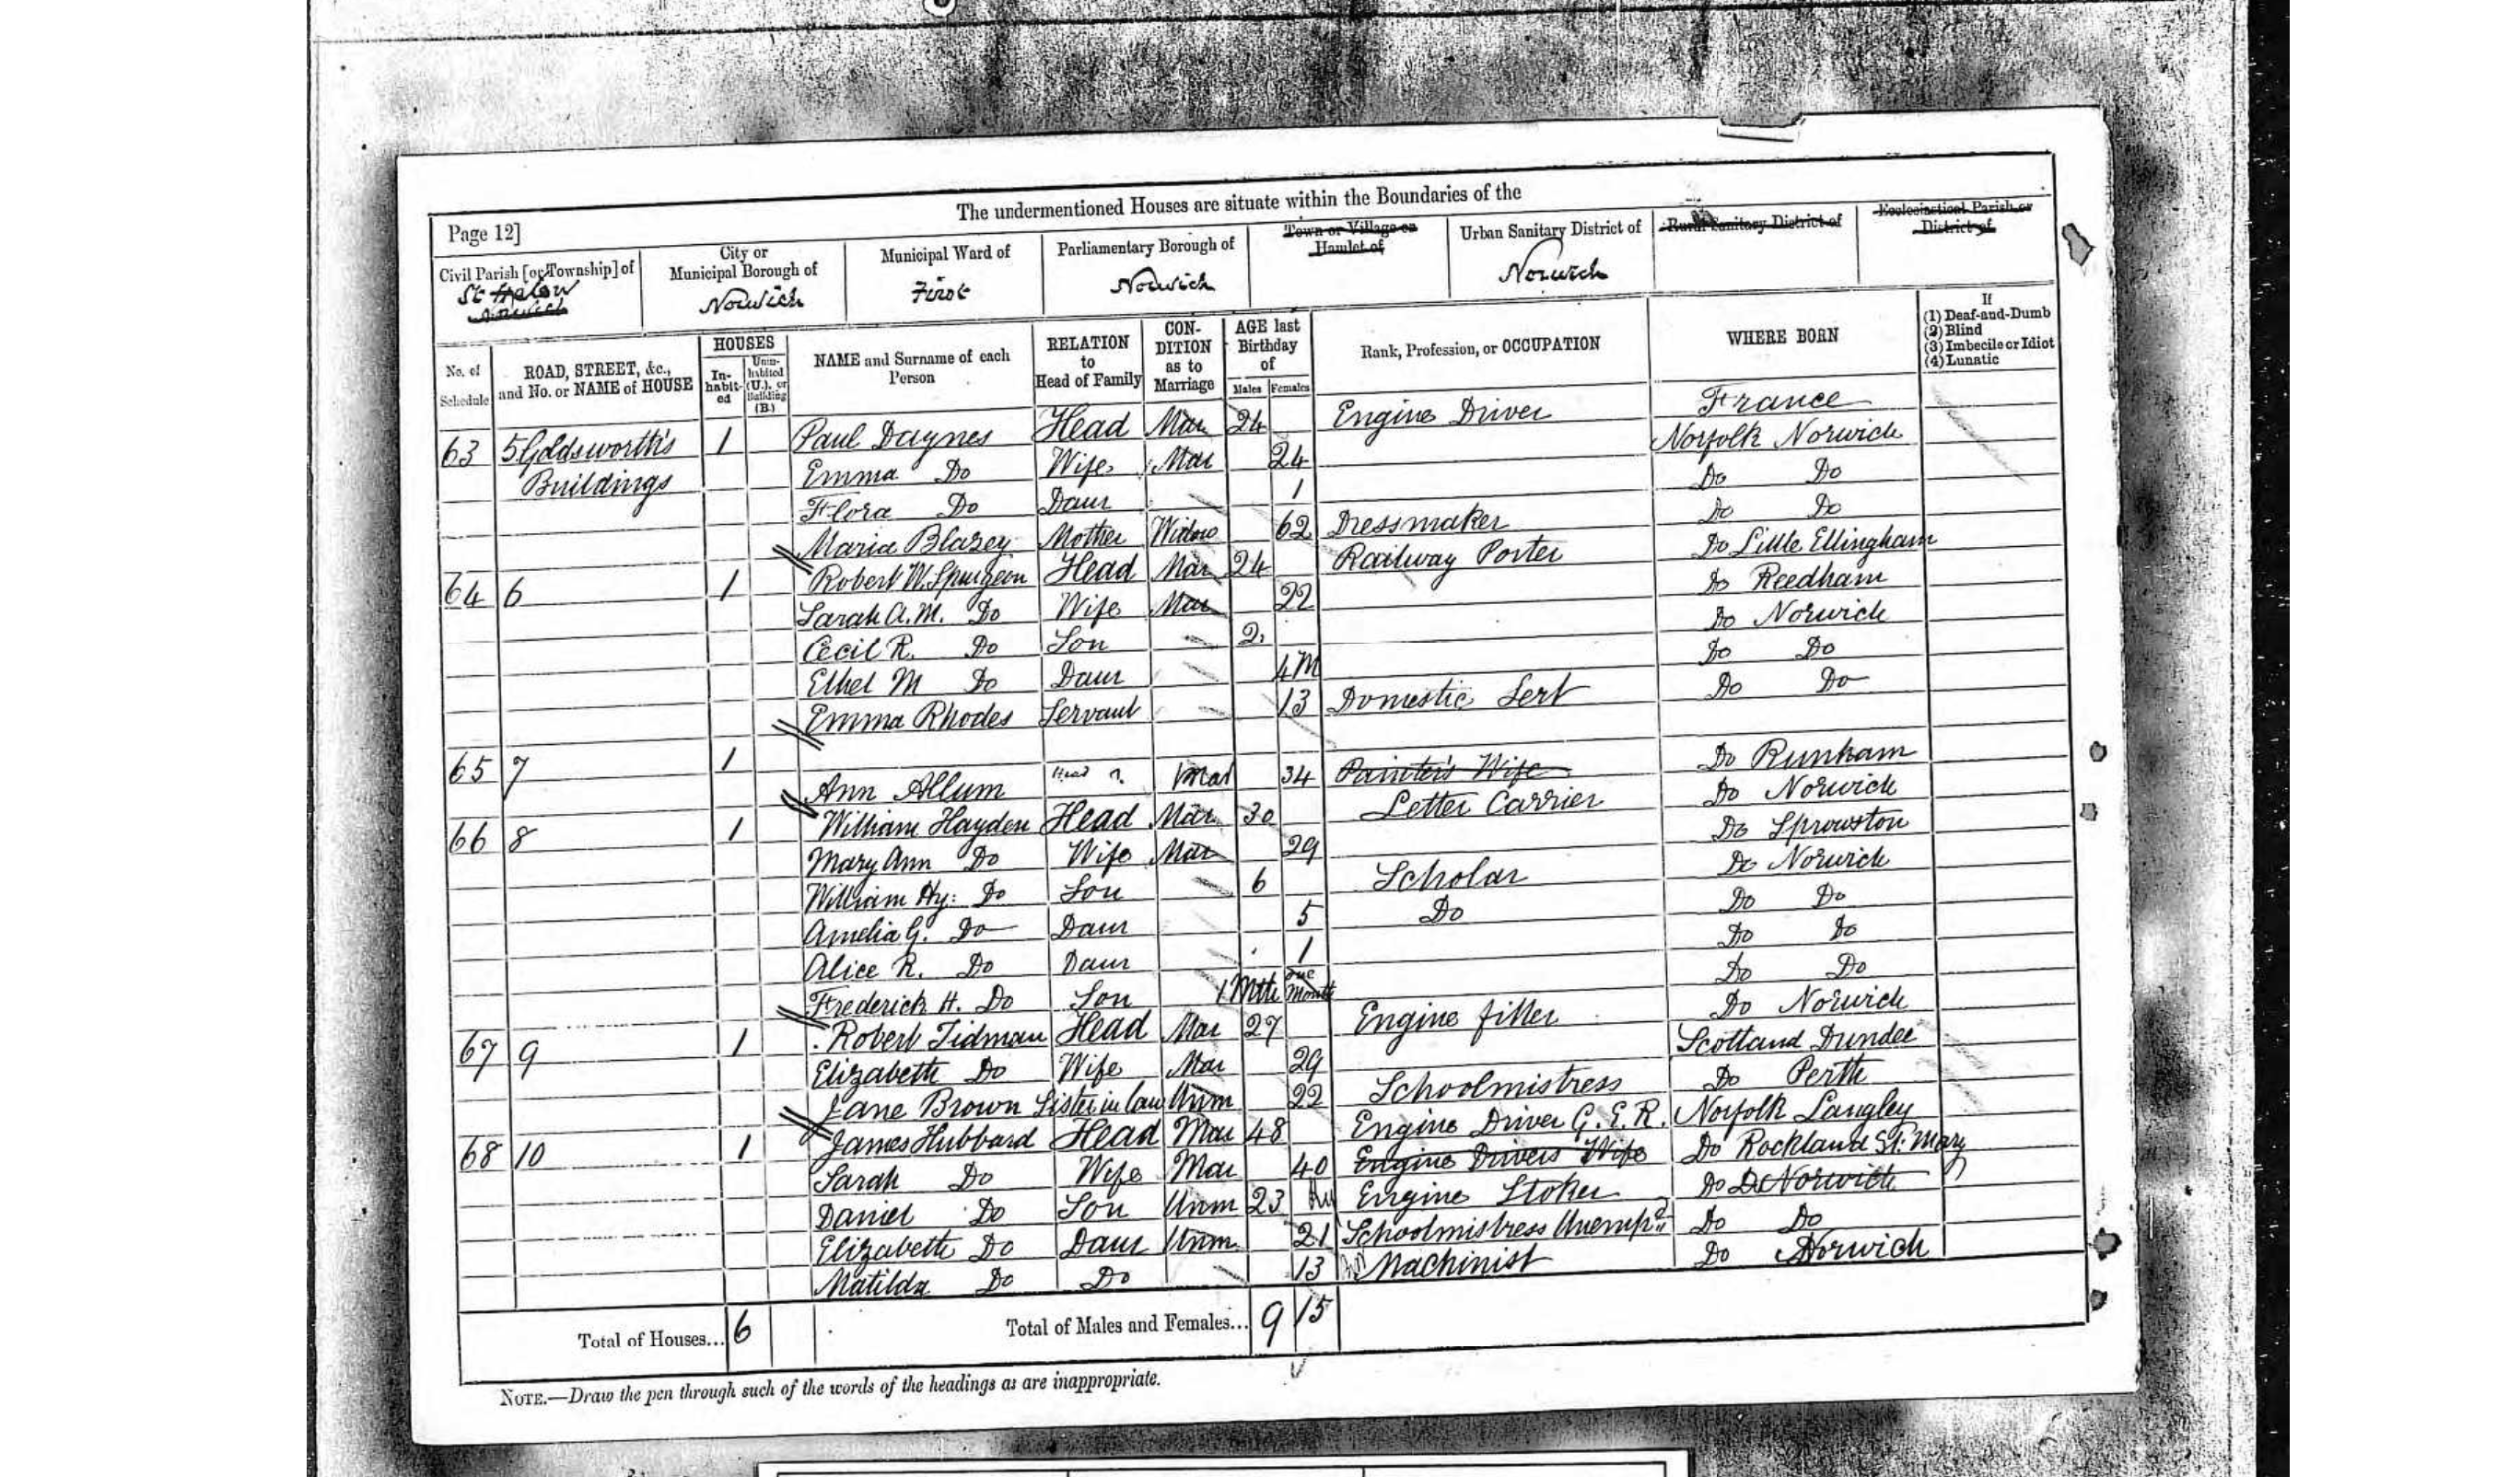 The undermentioned Houses are situate within the Boundaries of the
Page 12]
Civil Parish [or Township] of
St Helen
Norwich
City or
Municipal Borough of
Norwich
Municipal Ward of
First
Parliamentary Borough of
Norwich
Town or Village or
Hamlet of
Urban Sanitary District of
Norwich
Rural Sanitary District of
Ecclesiastical Parish or
District of
No. of
Schedule
ROAD, STREET, &c.,
and No. or NAME of HOUSE
HOUSES
In-
habit-
ed
Unin-
habited
(U.), or
Building
(B.)
NAME and Surname of each
Person
RELATION
to
Head of Family
CON-
DITION
as to
Marriage
AGE last
Birthday
of
Males Females
Rank, Profession, or OCCUPATION
WHERE BORN
If
(1) Deaf-and-Dumb
(2) Blind
(3) Imbecile or Idiot
(4) Lunatic
63 5 Goldsworth's 1 Paul Daynes Head Mar 24 Engine Driver France
Buildings Emma Do Wife Mar 24 Norfolk Norwich
Flora Do Daur 1 Do Do
Maria Blazey Mother Widow 62 Dressmaker Do Do
64 6 1 Robert W. Spurgeon Head Mar 24 Railway Porter Do Little Ellingham
Sarah A. M. Do Wife Mar 22 Do Reedham
Cecil R. Do Son 2 Do Norwich
Ethel M Do Daur 4M Do Do
Emma Rhodes Servant 13 Domestic Servt Do Do
65 7 1 Ann Allum Head ? Mar 34 Painter's Wife Do Runham
66 8 1 William Hayden Head Mar 30 Letter Carrier Do Norwich
Mary Ann Do Wife Mar 29 Do Sprowston
William Hy: Do Son 6 Scholar Do Norwich
Amelia G. Do Daur 5 Do Do Do
Alice R. Do Daur 1 Do Do
Frederick H. Do Son 1 Mth One Month Do Do
67 9 1 Robert Tidman Head Mar 27 Engine fitter Do Norwich
Elizabeth Do Wife Mar 29 Scotland Dundee
Jane Brown Sister in law Unm 22 Schoolmistress Do Perth
68 10 1 James Hubbard Head Mar 48 Engine Driver G. E. R. Norfolk Langley
Sarah Do Wife Mar 40 Engine Drivers Wife Do Rockland St. Mary
Daniel Do Son Unm 23 Engine Stoker Do Do Norwich
Elizabeth Do Daur Unm 21 Schoolmistress Unempd Do Do
Matilda Do Do 13 Machinist Do Norwich
Total of Houses... 6 Total of Males and Females... 9 15
NOTE.—Draw the pen through such of the words of the headings as are inappropriate.